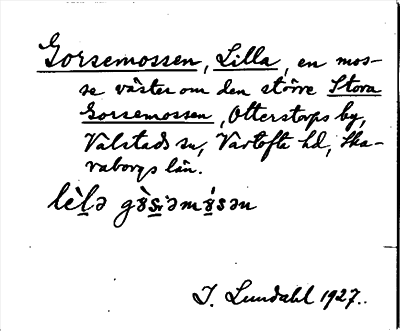 Gorsemossen, Lilla, en mos-
se väster om den större Stora
Gorsemossen, Otterstorps by,
Valstads sn, Vartofta hd, Ska-
raborgs län.
lèl̠ə gɤ̀s̠əmɤ́sən
I. Lundahl 1927.